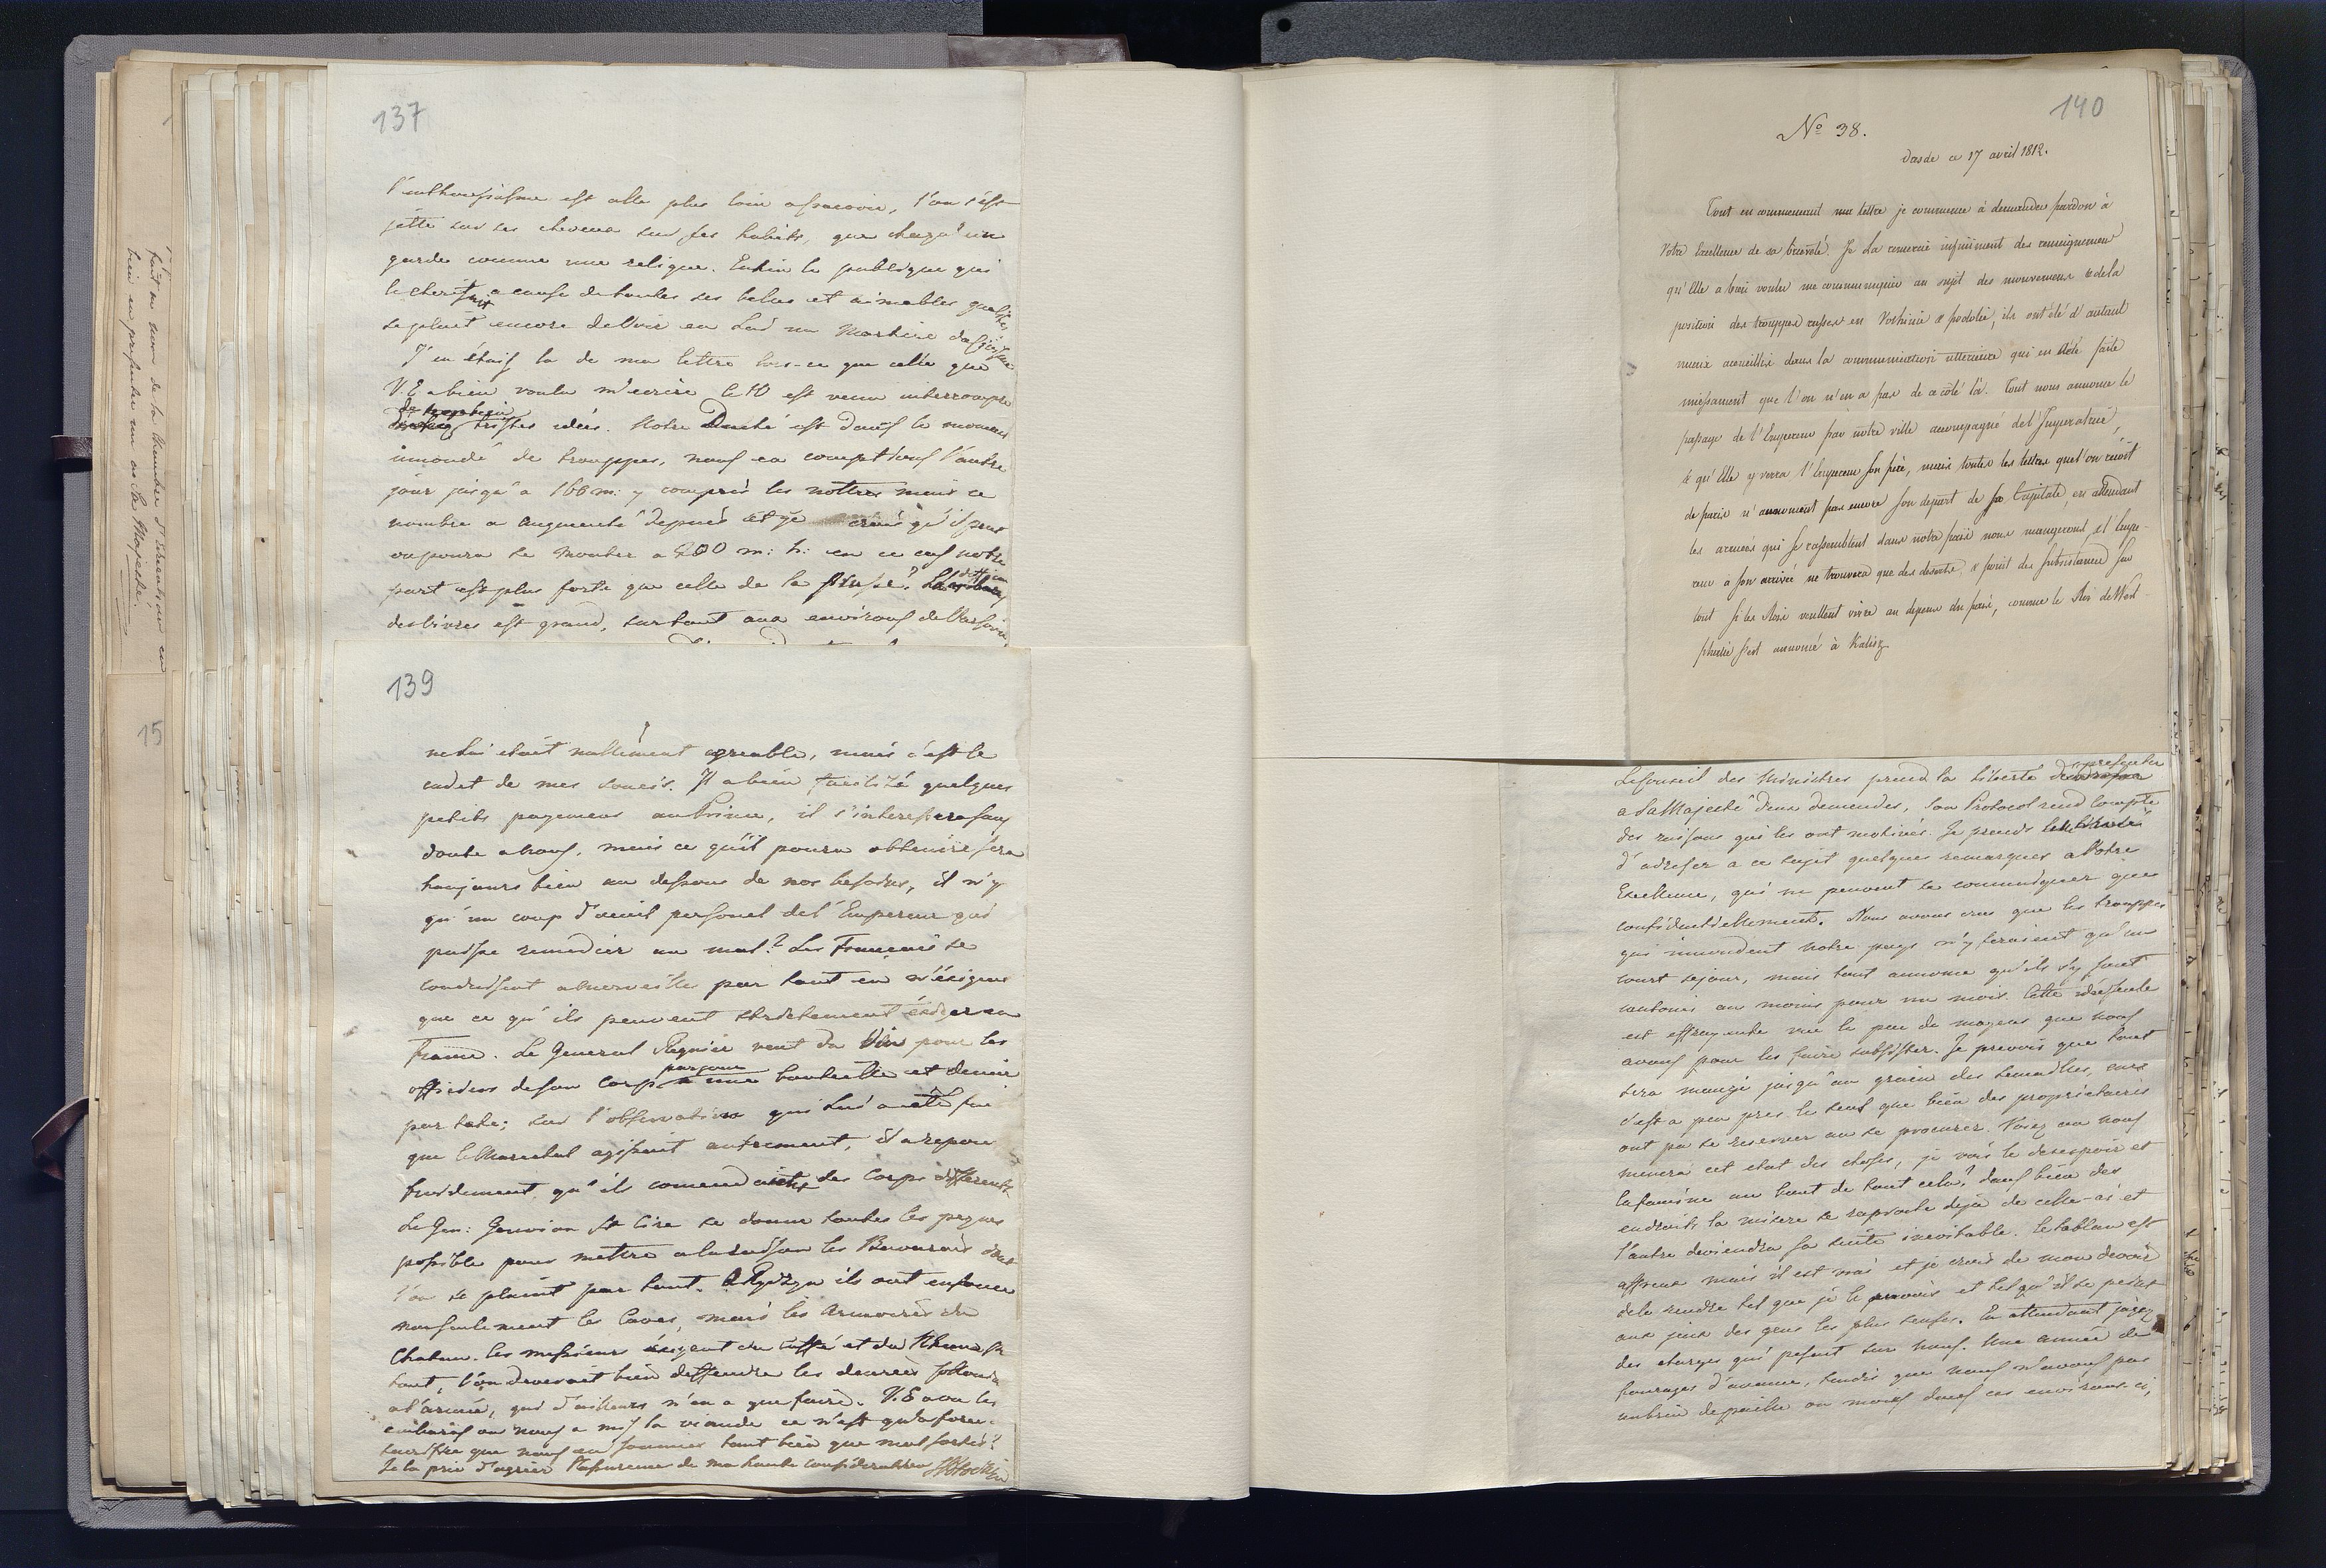 137
l'enthousiasme est allé plus loin l'on s'est
jetté sur ses cheveux sur ses habits, que chaqu'un
garde comme une relique. Enfin le publique qui
le cherit a cause de toutes ses belles et aimables qualités
se plait encore de voir en Lui un Martire
J'en étais la de ma lettre lors-ce que celle que
V. E a bien voulu m'ecrire le 10 est venu interrompre
tristes idées. Notre Duché est dans le moment
innondé de trouppes, nous en comptions l'autre
jour jusqu'a 166 m: y compris les nottres mais ce
nombre a augmenté depuis et je crois qu'il peut
ou poura se monter a 200 m: h: en ce cas notre
part est plus forte que celle de la
des vivres est grand, surtout aux environs de Varsovie,
139
ne Lui etait nullement agreable, mais c'est le
cadet de mes soucis. Il a bien facilité quelques
petits payemens au Prince, il s'interessera sans
doute a nous, mais ce qu'il poura obtenir sera
toujours bien au dessous de nos besoins, il n'y
qu'un coup d'oeuil personel de l'Empereur qui
puisse remedier au mal? Les Français se
conduisent a merveilles par tout en n'éxigeant
que ce qu'ils peuvent strictement exiger en
France. Le General Regnier veut du Vin pour les
officiers de son corps par jour a une bouteille et demie
par tete; sur l'observation qui Lui a été fai
que le Marechal agissait autrement, il a repon
froidement qu'ils comendaient des Corps differents
Le Gen: Gouvion St Cire se donne toutes les peynes
possible pour mettre a la raison les Bavarois dont
l'on se plaint par tout. A ils ont enfoncé
non seulement les Caves, mais les Armoires du
Chateau. les messieurs éxigent du Caffé et du Rhum
tout, l'on devrait bien deffendre les denrées
a l'armée, qui d'ailleurs n'en a que faire. V. E aura les
embaras ou nous a mis la viande ce n'est qu'a force
que nous en sommes tant bien que mal sortis?
Je la prie d'agréer l'assurance de ma haute consideration
140
Nº 38.
Dresde ce 17 avril 1812.
Tout en commencant ma lettre je commence à demander pardon à
Votre Excellence de sa brieveté. Je La remercie infiniment des renseignemens
qu'Elle a bien voulu me communiquer au sujet des mouvemens & de la
position des trouppes russes en Volhinie & podolie, ils ont été d'autant
mieux accueillis dans la communication ulterieure qui en a été faite
que l'on n'en a pas de ce côté là. Tout nous annonce le
passage de l'Empereur par notre ville accompagné de l'Imperatrice,
& qu'Elle y verra l'Empereur son père, mais toutes les lettres que l'on reçoit
de paris n'annoncent pas encore son depart de sa Capitale, en attendant
les armées qui se rassemblent dans notre païs nous mangeront, et l'Empe-
reur à son arrivée ne trouvera que des deserts & point des subsistances sur
tout si les Rois veulent vivre au depens du païs, comme le Roi de West-
phalie s'est annoncé à Kalisz
Le Conseil des Ministres prend la liberté de presenter
a Sa Majesté deux demandes, son Protocol rend compte
des raisons qui les ont motivés. Je prends la liberté
d'adresser a ce sujet quelques remarques a Votre
Excellence, qui ne peuvent se communiquer que
confidentiellement. Nous avons crus que les trouppes
qui innondent notre pays n'y feraient qu'un
court sejour, mais tout annonce qu'ils s'y sont
cantonis au moins pour un mois. Cette idée seule
est effrayante vue le peu de moyens que nous
avons pour les faire subsister. Je prevois que tout
sera mangé jusqu'au grain des semailles, car
c'est a peu pres le seul que bien des proprietaires
ont pu se reserver ou se procurer. Voiez ou nous
menera cet etat des choses, je vois le desespoir et
la famine au bout de tout cela? dans bien des
endroits la misere se raproche deja de celle-ci et
l'autre deviendra sa suite inevitable. Le tableau est
affreux mais il est vrai et je crois de mon devoir
de le rendre tel que je le prevois et tel qu'il se peint
aux yeux des gens les plus sensés. En attendant jugez
des charges qui pesent sur nous. Une année de
fourages d'avance, tandis que nous n'avons pas
un brin de paille ou moins dans ces environs-ci,
fait au nom de la Chambre d'
bien en presenter un a Sa Majesté.
15